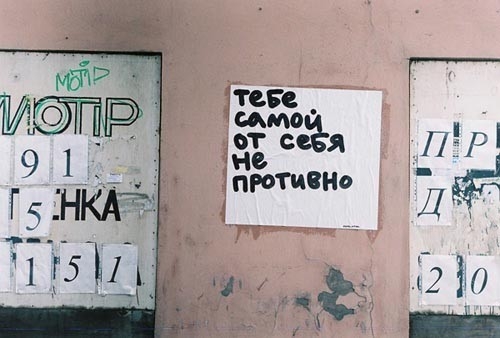 МОТІР
МОТІР
91
5
ЕНКА
151
тебе
самой
от себя
не
противно
ПР
Д
20